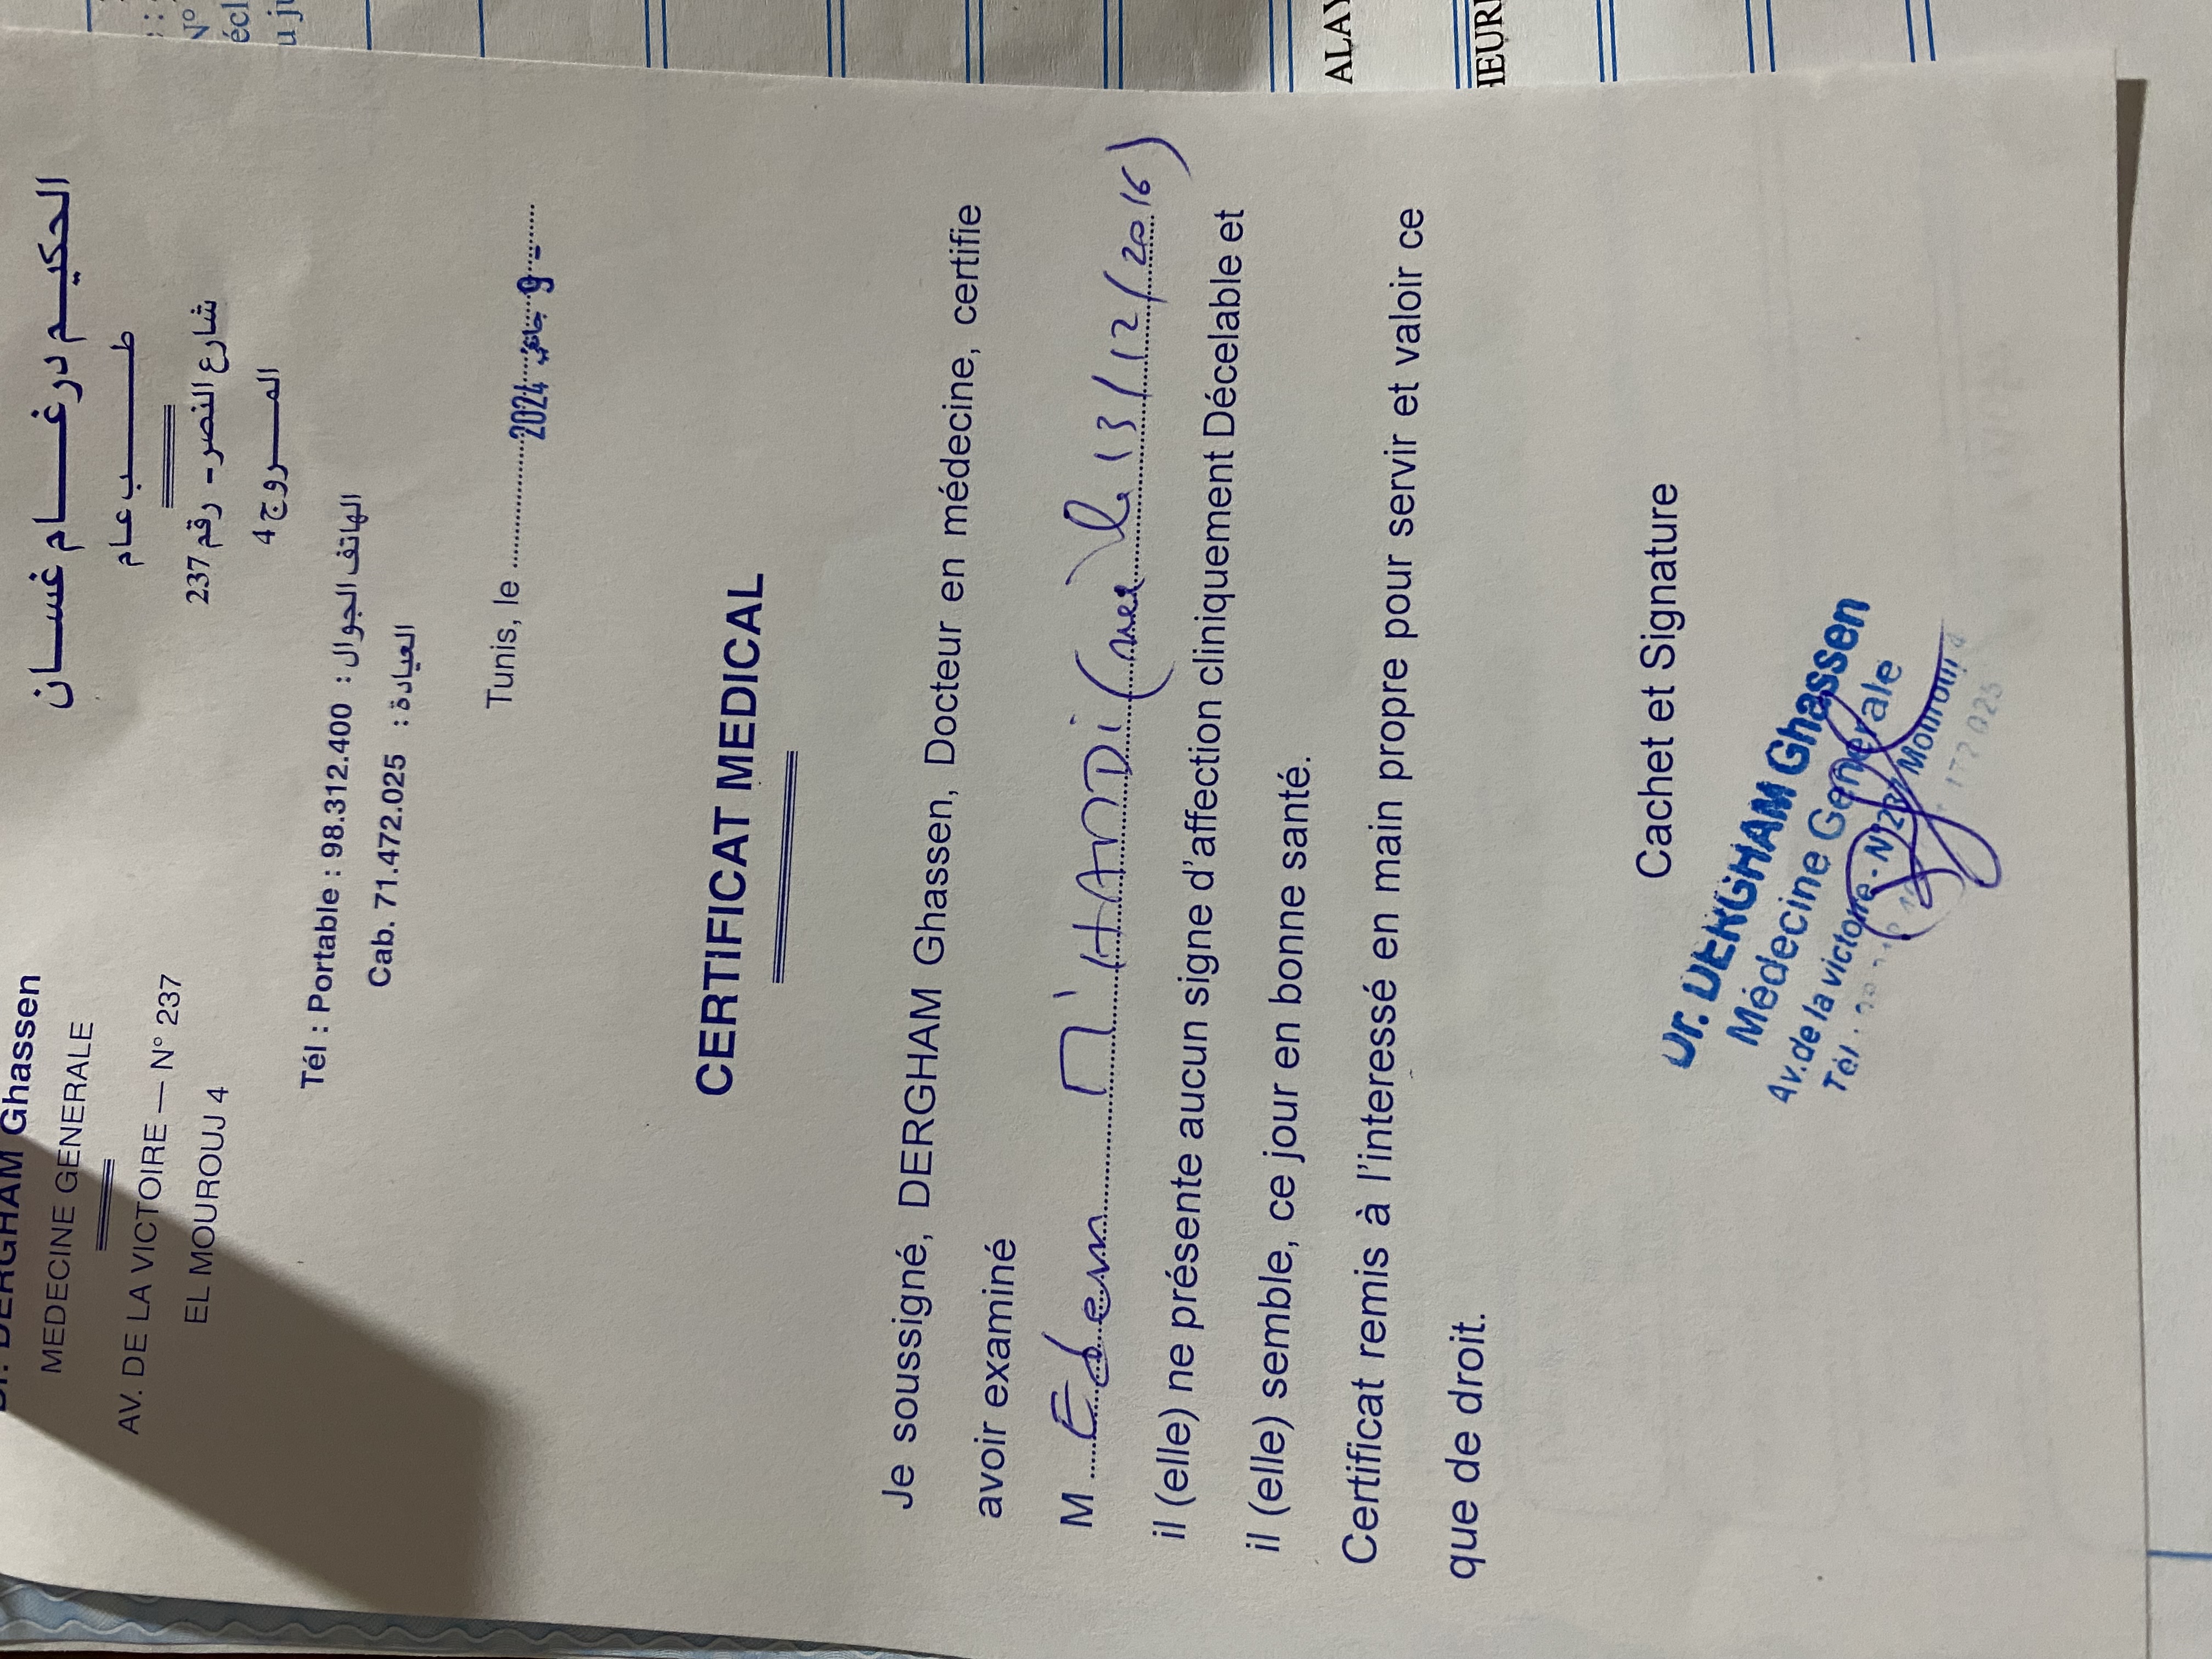 Dr. DERGHAM Ghassen
MEDECINE GENERALE
AV. DE LA VICTOIRE — N° 237
EL MOUROUJ 4
الحكيم درغام غسان
طب عام
شارع النصر - رقم 237
المروج 4
Tél : Portable : 98.312.400 : الهاتف الجوال
Cab. 71.472.025 : العيادة
Tunis, le 2024 جانفي 9 -
CERTIFICAT MEDICAL
Je soussigné, DERGHAM Ghassen, Docteur en médecine, certifie
avoir examiné
M Edem M'HAMDI (née le 13/12/2016)
il (elle) ne présente aucun signe d'affection cliniquement Décelable et
il (elle) semble, ce jour en bonne santé.
Certificat remis à l'interessé en main propre pour servir et valoir ce
que de droit.
Cachet et Signature
Dr. DERGHAM Ghassen
Médecine Generale
Av. de la victoire - N°237 Mourouj 4
Tél :
ALAY
HEUR
N°
écl
u ju